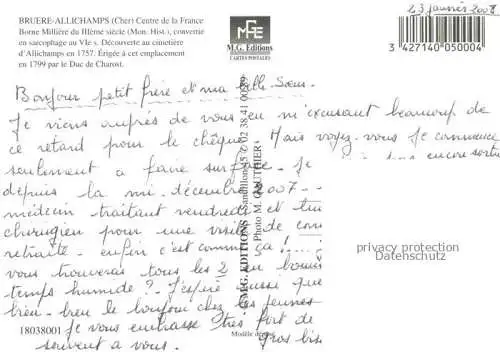 BRUERE-ALLICHAMPS (Cher) Centre de la France
Borne Millière du IIIème siècle (Mon. Hist.), convertie
en sarcophage au VIe s. Découverte au cimetière
d'Allichamps en 1757. Érigée à cet emplacement
en 1799 par le Duc de Charost.
MGE
M.G. Editions
CARTES POSTALES
23 janvier 2008
3 427140 050004
Bonjour petit frère et ma belle-Soeur
Je viens auprès de vous en m'excusant beaucoup de
ce retard pour le chèque. Mais voyez-vous Je commence
seulement à faire surface. Je ... encore sortie
depuis la mi-décembre 2007...
médecin traitant vendredi et
chirugien pour une visite de con
retraite. enfin c'est comme ça !....
vous trouverais tous les 2 en bonne
temps humide ? J'espère aussi que
bien. bien le bonjour chez les jeunes
Je vous embrasse très fort de
souvent à vous. gros bis
M.G. EDITIONS
02 38 41 00
Photo M. GAUTHIER
Modèle déposé
18038001
privacy protection
Datenschutz